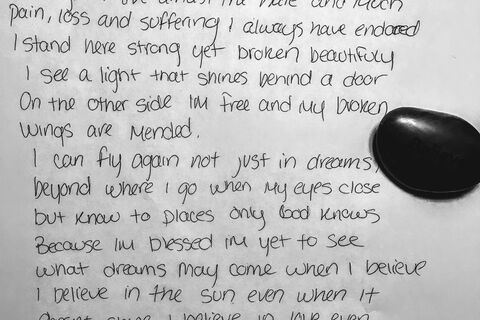 the hate and much
Pain, loss and suffering I always have endored
I stand here strong yet broken beautifuly
I see a light that shines behind a door
On the other side Im free and My broken
wings are Mended.
I can fly again not just in dreams,
beyond where I go when My eyes close
but know to places only God knows
Because Im blessed Im yet to see
what dreams May come when I believe
I believe in the sun even when it
doesnt shine I believe in love even